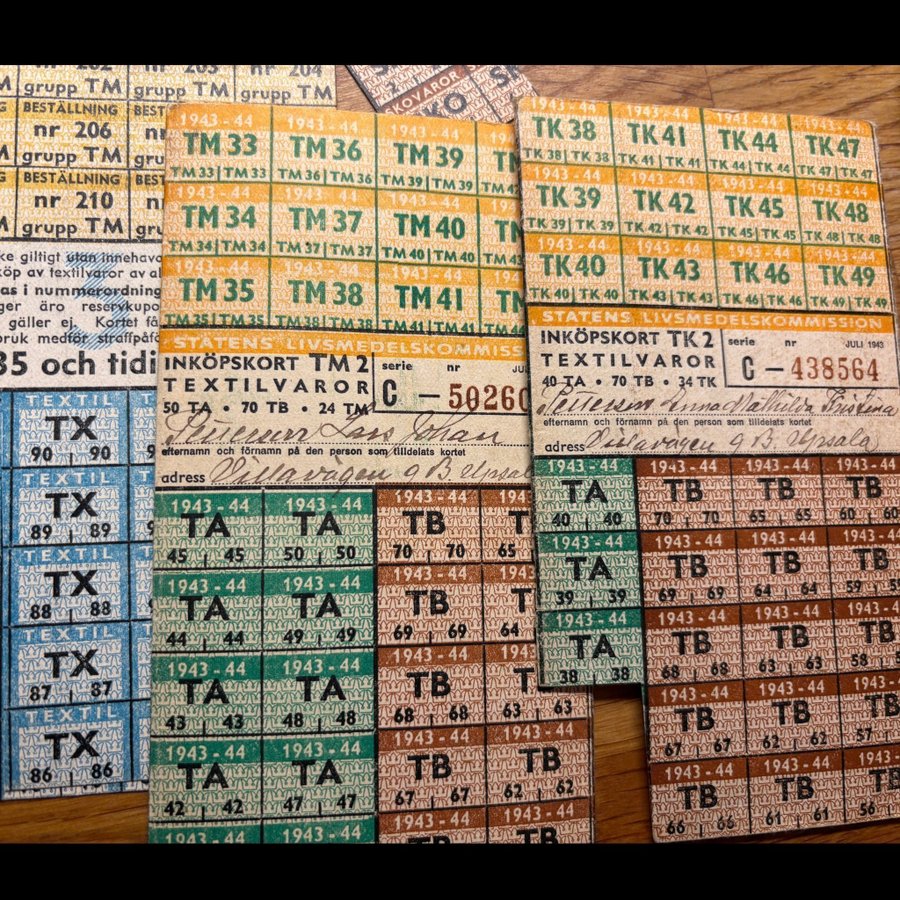 nr 202 203 nr 204
grupp TM grupp TM grupp TM
BESTÄLLNING BESTÄLLNING
nr 206 nr
grupp TM grupp
BESTÄLLNING BESTÄLLNING
nr 210 nr
grupp TM grupp
ke giltigt utan innehava
köp av textilvaror av al
as i nummerordning
ger äro reservkupo
gäller ej. Kortet få
bruk medför straffpåfö
35 och tidi
TEXTIL
TX
90 90
TEXTIL
TX
89 89
TEXTIL
TX
88 88
TEXTIL
TX
87 87
TEXTIL
TX
86 86
SKOVAROR
SKO
1943-44 1943-44 1943-44
TM 33 TM 36 TM 39
TM 33 TM 33 TM 36 TM 36 TM 39 TM 39 TM 42
1943-44 1943-44 1943-44
TM 34 TM 37 TM 40
TM 34 TM 34 TM 37 TM 37 TM 40 TM 40
1943-44 1943-44 1943-44
TM 35 TM 38 TM 41
TM 35 TM 35 TM 38 TM 38 TM 41 TM 41 TM 44
STATENS LIVSMEDELSKOMMISS
INKÖPSKORT TM 2
TEXTILVAROR
50 TA • 70 TB • 24 TM
serie nr JU
C – 50260
Pettersson Lars Johan
efternamn och förnamn på den person som tilldelats kortet
adress Villavägen 9 B. Upsala
1943-44 1943-44 1943-44
TA TA TB T
45 45 50 50 70 70 65
1943-44 1943-44 1943-44 1943
TA TA TB
44 44 49 49 69 69 64
1943-44 1943-44 1943-44 1943-44
TA TA TB TB
43 43 48 48 68 68 63 63
1943-44 1943-44 1943-44 1943-44
TA TA TB TB
42 42 47 47 67 67 62 62
1943-44 1943-44 1943-44 1943-44
TA TA TB TB
1943-44 1943-44 1943-44 1943-44
TK 38 TK 41 TK 44 TK 47
TK 38 TK 38 TK 41 TK 41 TK 44 TK 44 TK 47 TK 47
1943-44 1943-44 1943-44 1943-44
TK 39 TK 42 TK 45 TK 48
TK 39 TK 39 TK 42 TK 42 TK 45 TK 45 TK 48 TK 48
1943-44 1943-44 1943-44 1943-44
TK 40 TK 43 TK 46 TK 49
TK 40 TK 40 TK 43 TK 43 TK 46 TK 46 TK 49 TK 49
STATENS LIVSMEDELSKOMMISSION
INKÖPSKORT TK 2
TEXTILVAROR
40 TA • 70 TB • 34 TK
serie nr JULI 1943
C – 438564
Pettersson Anna Mathilda Kristina
efternamn och förnamn på den person som tilldelats kortet
adress Villavägen 9 B. Upsala
1943-44 1943-44 1943-44 1943-44
TA TB TB TB
40 40 70 70 65 65 60 60
1943-44 1943-44 1943-44 1943-44
TA TB TB TB
39 39 69 69 64 64 59 59
1943-44 1943-44 1943-44 1943-44
TA TB TB TB
38 38 68 68 63 63 58 5
1943-44 1943-44 1943-44
TB TB TB
67 67 62 62 57
1943-44 1943-44 1943-44
TB TB TB
66 66 61 61 56